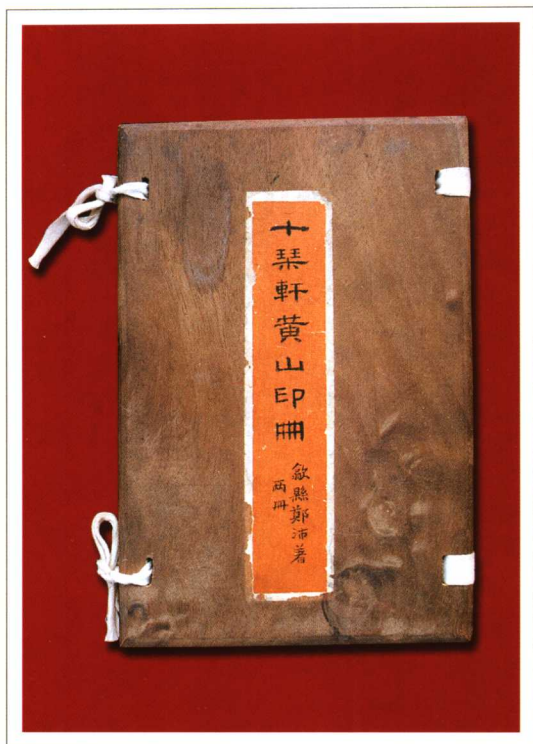 十琹軒黄山印冊
歙縣鄭沛著
兩冊